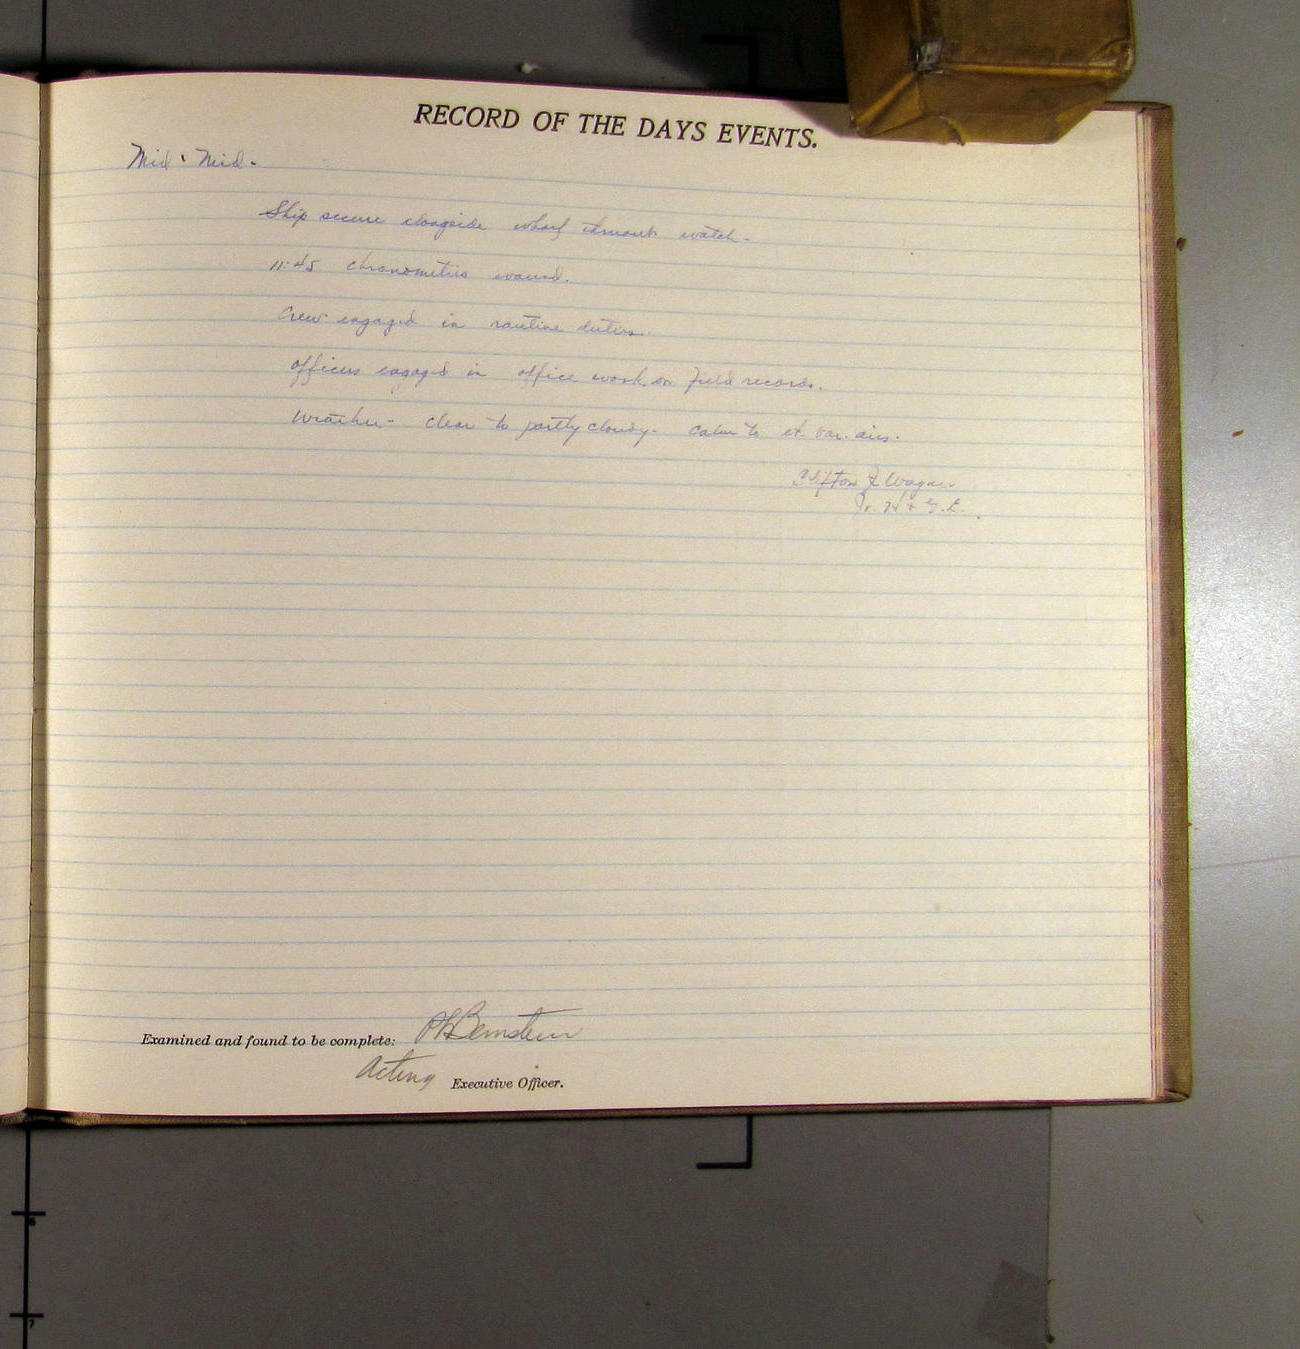 RECORD OF THE DAYS EVENTS.
Mid - Mid.
Ship secure alongside wharf thruout watch.
11:45 chronometers wound.
Crew engaged in routine duties.
Officers engaged in office work on field records.
Weather - clear to partly cloudy - calm to lt. var. airs.
Clifton J. Wagner
Jr. H & G.E.
Examined and found to be complete: Bernstein
Acting Executive Officer.
6
7